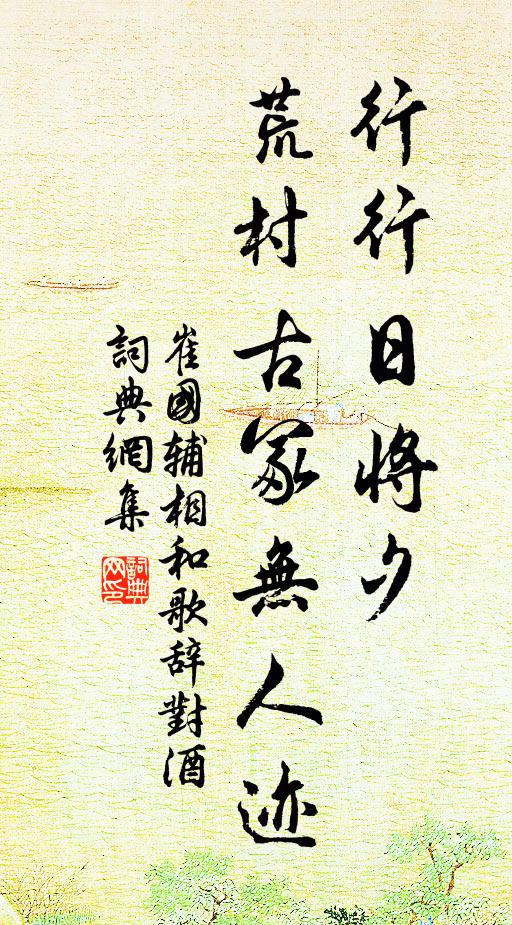 行行日將夕
荒村古冢無人迹
崔國辅相和歌辞對酒
詞典網集
詞典
网印